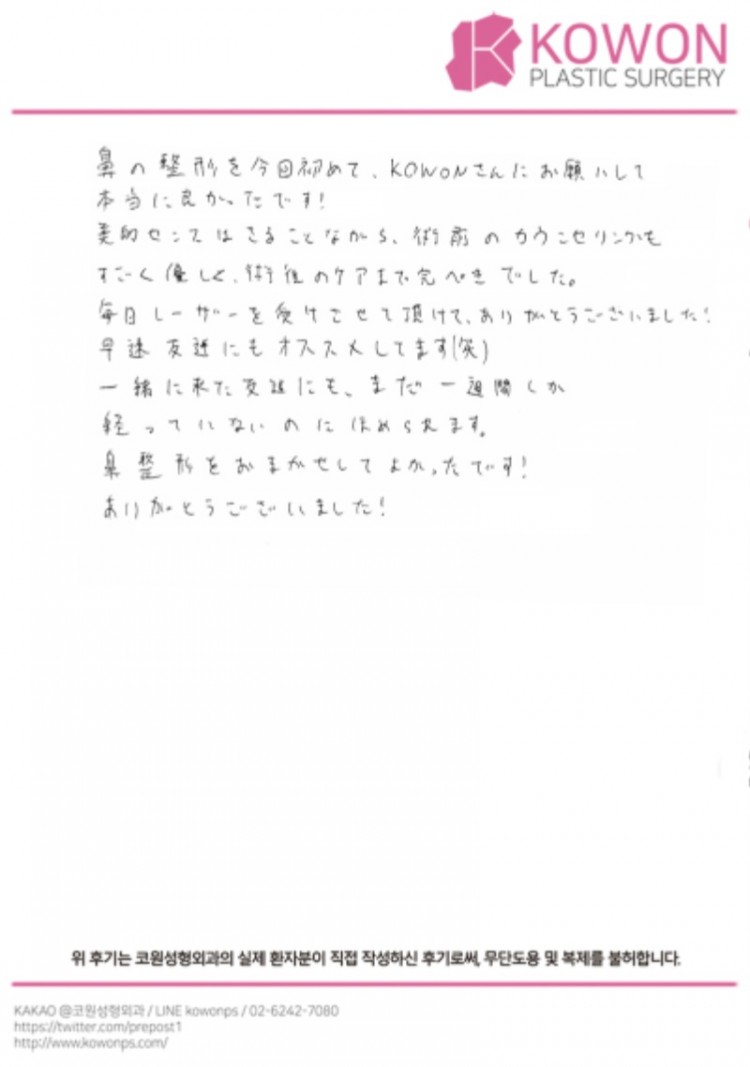 KOWON
PLASTIC SURGERY
鼻の整形を今回初めて、KOWONさんにお願いして
本当に良かったです!
美的センスはさることながら、術前のカウンセリングも
すごく優しく、術後のケアまで完ぺきでした。
毎日レーザーを受けさせて頂けて、ありがとうございました!
早速友達にもオススメしてます(笑)
一緒に来た友達にも、まだ一週間しか
経っていないのにほめられます。
鼻整形をおまかせしてよかったです!
ありがとうございました!
위 후기는 코원성형외과의 실제 환자분이 직접 작성하신 후기로써, 무단도용 및 복제를 불허합니다.
KAKAO @코원성형외과 / LINE kowonps / 02-6242-7080
https://twitter.com/prepost1
http://www.kowonps.com/